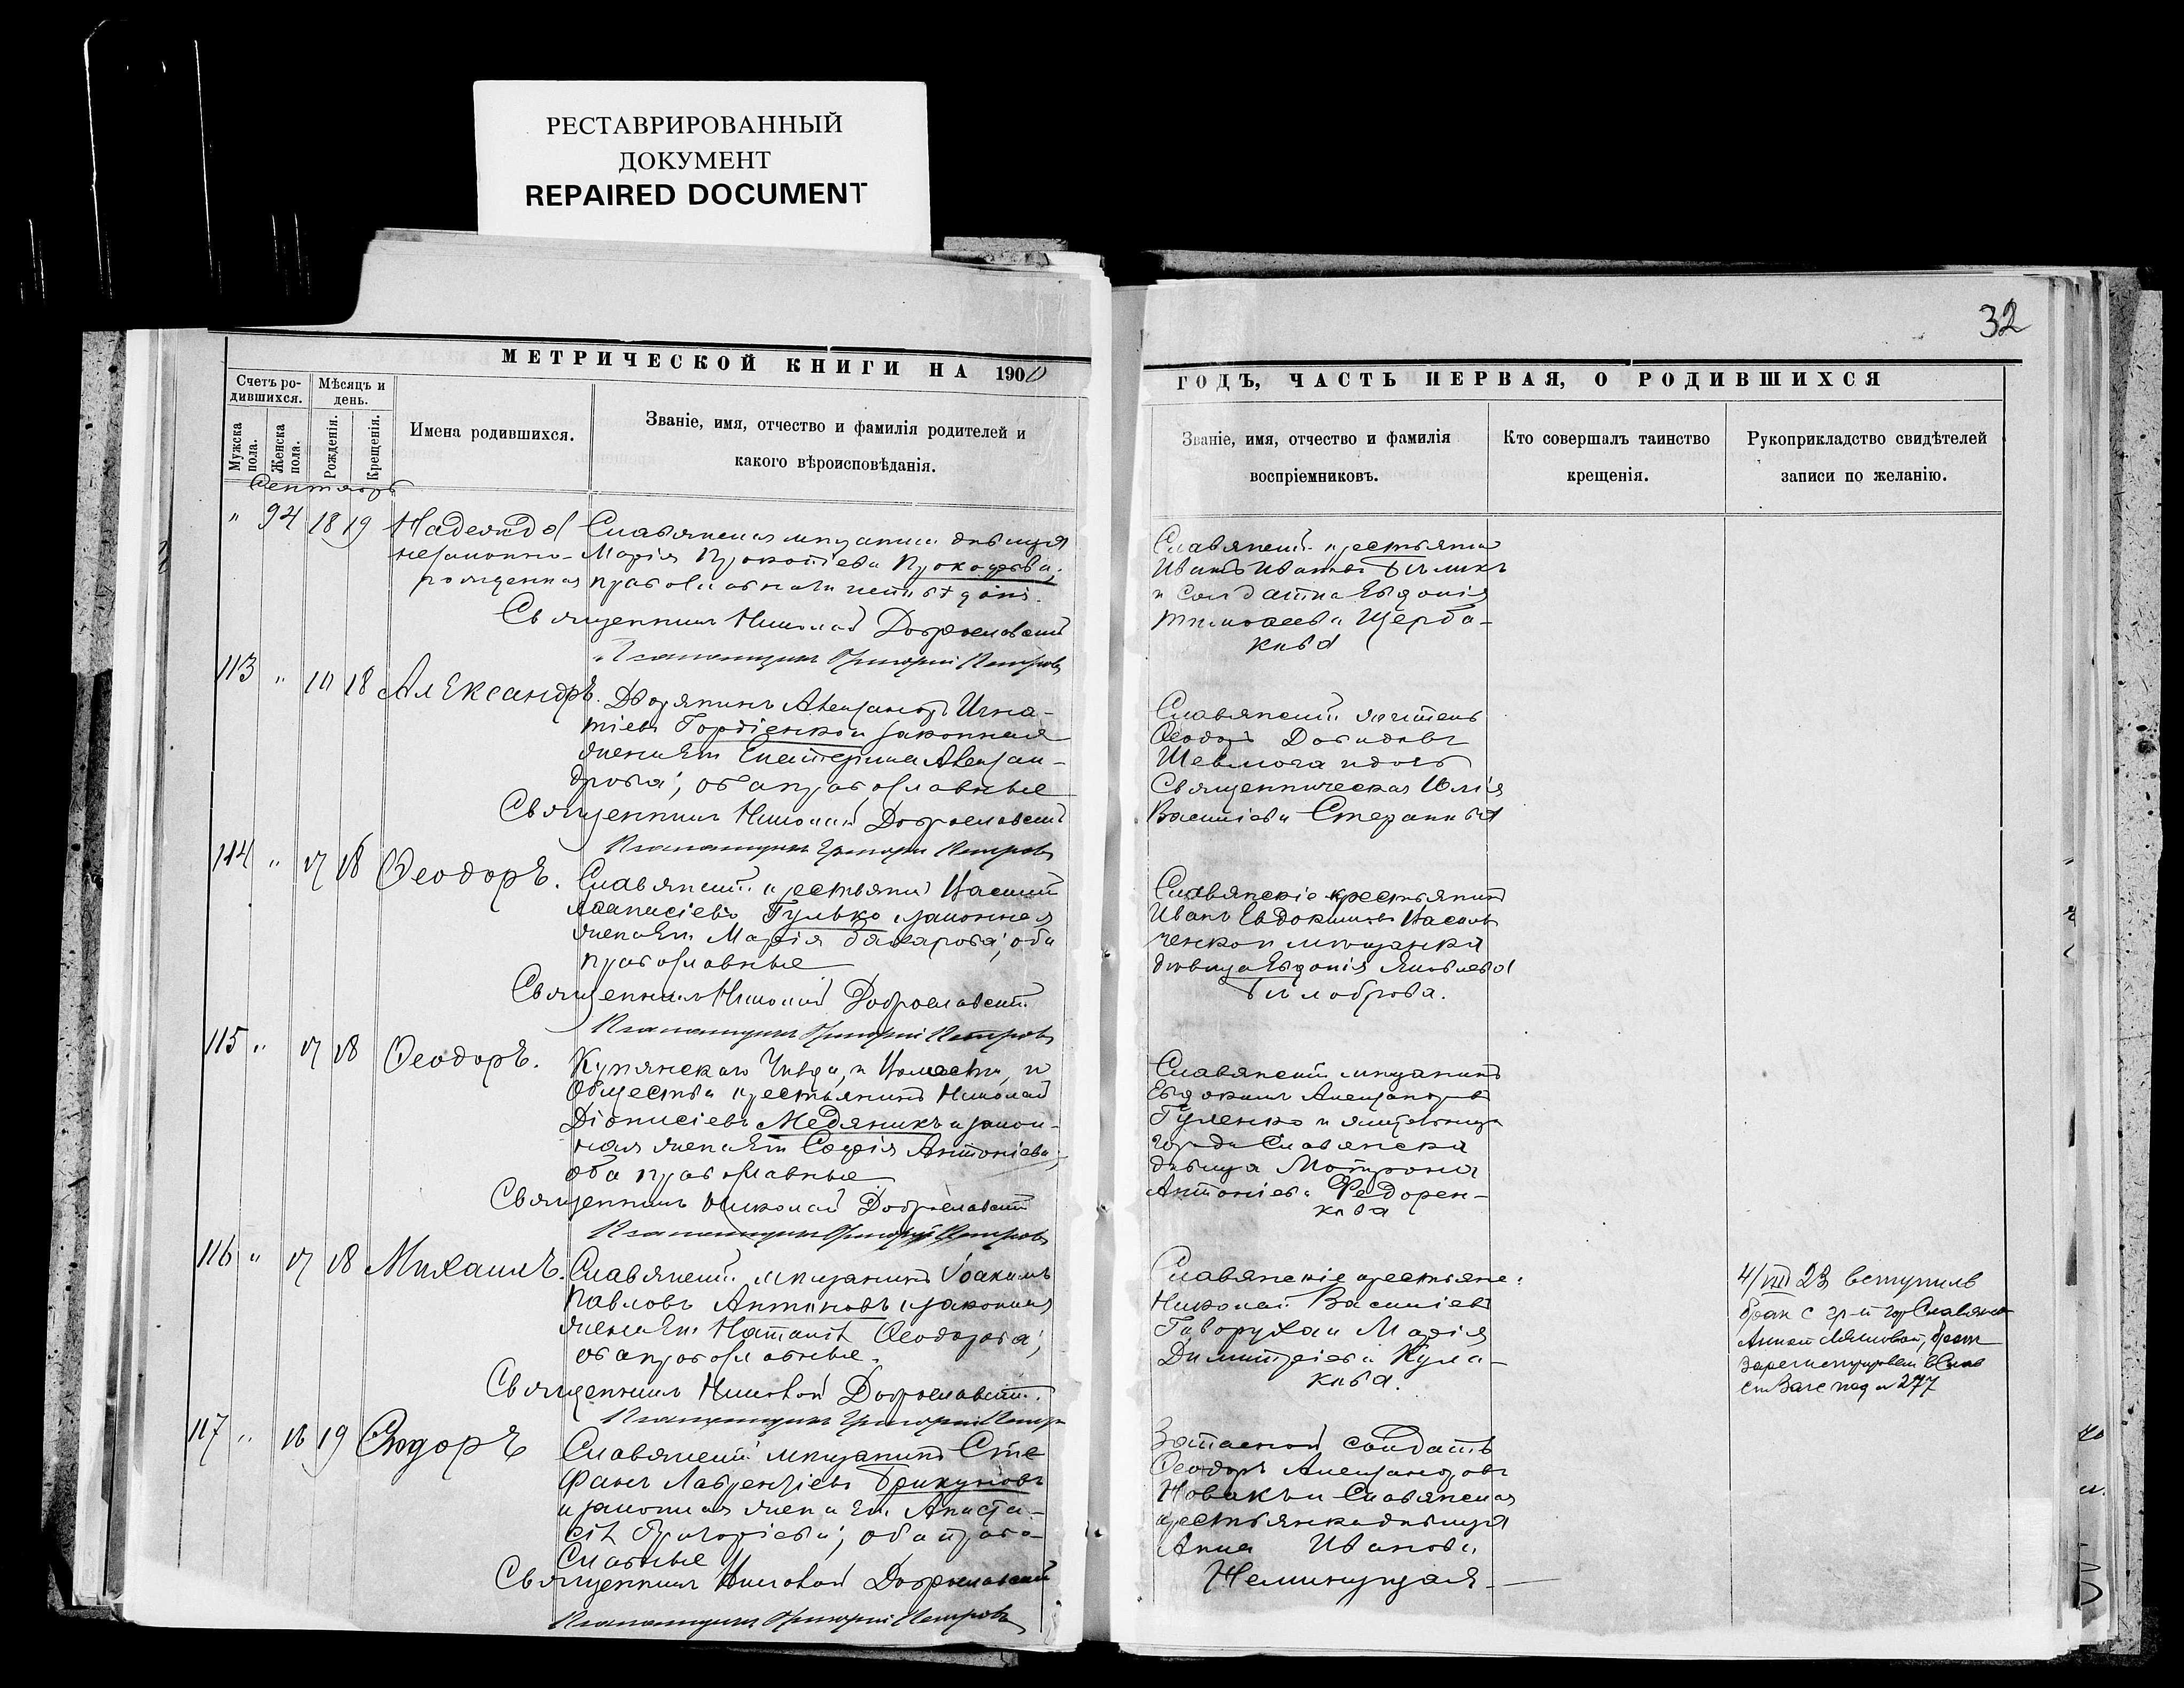 РЕСТАВРИРОВАННЫЙ
ДОКУМЕНТ
REPAIRED DOCUMENT
32
МЕТРИЧЕСКОЙ КНИГИ НА 1900
ГОДЪ, ЧАСТЬ ПЕРВАЯ, О РОДИВШИХСЯ
Счетъ ро-
дившихся.
Мѣсяцъ и
день.
Мужска
пола.
Женска
пола.
Рожденія.
Крещенія.
Имена родившихся.
Званіе, имя, отчество и фамилія родителей и
какого вѣроисповѣданія.
Званіе, имя, отчество и фамилія
воспріемниковъ.
Кто совершалъ таинство
крещенія.
Рукоприкладство свидѣтелей
записи по желанію.
Сентябрь
" 94 18 19 Надежда
незаконно-
рожденная
Славянская мѣщанка дѣвица
Марія Прокопіева
православнаго
Священникъ Николай Доброславскій
Псаломщикъ Григорій Петровъ
Славянскій крестьянинъ
Иванъ Ивановъ Бѣликъ
и солдатка Евдокія
Тимоѳеева Щерба-
кова
113 " 18 Александръ.
Дворянинъ Александръ Игна-
тіевъ Гордіенко и законная
жена его Екатерина Алексан-
дрова; оба православные
Священникъ Николай Доброславскій
Псаломщикъ Григорій Петровъ
Славянскій
Ѳеодоръ Давидовъ
Шевлюга и дочь
Священническая Юлія
Василіева
114 " 17 18 Ѳеодоръ.
Славянскій крестьянинъ Василій
Аѳанасіевъ Гулько и законная
жена его Марія Захарова; оба
православные
Священникъ Николай Доброславскій
Псаломщикъ Григорій Петровъ
Славянскіе крестьянинъ
Иванъ Евдокимовъ Василь
ченко и мѣщанка
дѣвица Евдокія Яковлева
Бѣлоброва.
115 " 17 18 Ѳеодоръ.
Купянскаго Уѣзда, и Волости, и
Общества крестьянинъ Николай
Діонисіевъ Медяникъ и закон-
ная жена его Софія Антоніева;
оба православные
Священникъ Николай Доброславскій
Псаломщикъ Григорій Петровъ
Славянскій мѣщанинъ
Евдокимъ Александровъ
Гуленко и
города Славянска
дѣвица Матрона
Антоніева Федорен-
кова
116 " 17 18 Михаилъ.
Славянскій мѣщанинъ Іоакимъ
Павловъ Антиповъ и законная
жена его Наталія Ѳеодорова;
оба православные.
Священникъ Николай Доброславскій.
Псаломщикъ Григорій Петровъ
Славянскіе крестьяне:
Николай Василіевъ
Говоруха и Марія
Димитріева Кула-
кова.
4/VIII 23 вступилъ
брак с гр-й гор Славянск
Анной брак
Зарегистрирован в Слав
Загс под № 277
117 " 18 19 Сидоръ
Славянскій мѣщанинъ Сте
фанъ Лаврентіевъ Брикуновъ
и законная жена его Анаста-
сія Григоріева; оба право-
славные
Священникъ Николай Доброславскій
Псаломщикъ Григорій Петровъ
Запасной солдатъ
Ѳеодоръ Александровъ
Новакъ и Славянская
крестьянка дѣвица
Анна Иванова
Неминущая